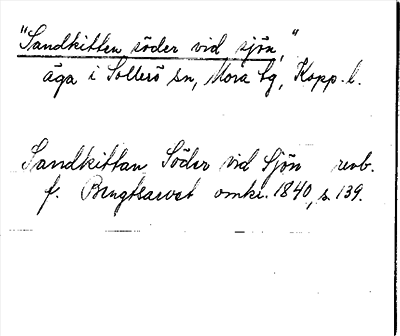 "Sandkitten söder vid sjön,"
äga i Sollerö sn, Mora tg, Kopp. l.
Sandkittan Söder vid Sjön renb.
f. Bengtsarvet omkr. 1840, s. 139.